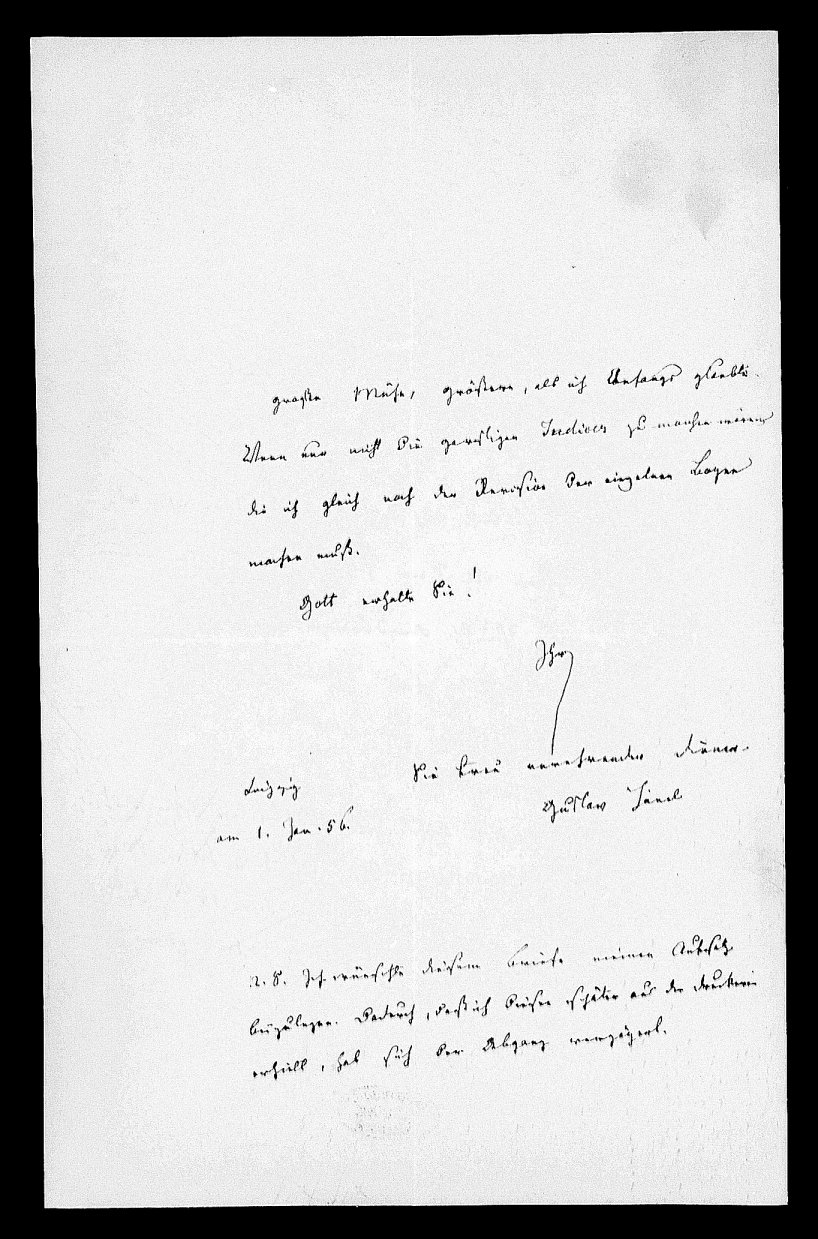 große Mühe, größere, als ich Anfangs glaubte.
Wenn nur nicht die garstigen Indices zu machen wären,
die ich gleich nach der Revision der einzelnen Bogen
machen muß.
Gott erhalte Sie!
Ihr
Sie treu verehrender Diener
Gustav Hänel
Leipzig
am 1. Jan. 56.
N. S. Ich wünschte diesem Briefe meinen Aufsatz
beizulegen. Dadurch, daß ich diesen später aus der Druckerei
erhielt, hat sich der Abgang verzögert.